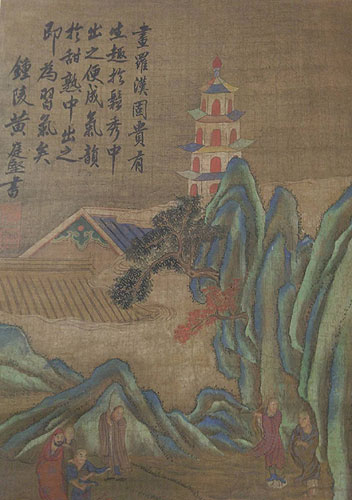 畫羅漢圖貴有
生趣於鬆秀中
出之便成氣韻
於甜熟中出之
即為習氣矣
鍾陵黃庭堅書